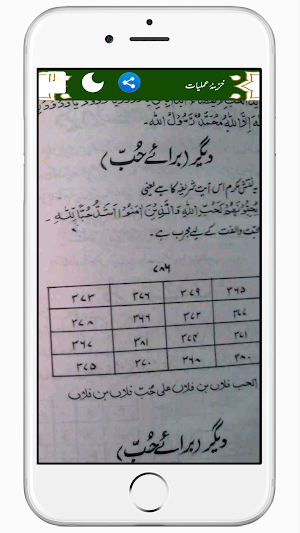 خزینۂ عملیات
اِلَّا اللّٰهُ مُحَمَّدٌ رَّسُوْلُ اللّٰهِ۔
دیگر (برائے حُبّ)
یہ نقش مکرم اس آیت شریفہ کا ہے یعنی
يُحِبُّوْنَهُمْ كَحُبِّ اللّٰهِ وَالَّذِيْنَ اٰمَنُوْا اَشَدُّ حُبًّا لِّلّٰهِ۔
محبّت والفت کے لیے مجرب ہے۔
۷۸۶
۳۶۵ ۳۷۹ ۳۷۶ ۳۷۳
۳۷۷ ۳۷۲ ۳۶۶ ۳۷۸
۳۷۱ ۳۷۴ ۳۸۱ ۳۶۷
۳۸۰ ۳۶۸ ۳۷۰ ۳۷۵
الحب فلاں بن فلاں علی حُبّ فلاں بن فلاں
دیگر (برائے حُبّ)